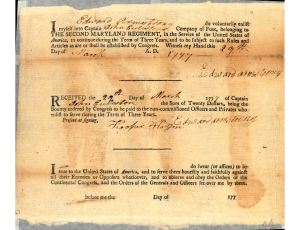 I Edward Armstrong do voluntarily enlist
myself into Captain John Eccleston Company of Foot, belonging
to THE SECOND MARYLAND REGIMENT, in the Service of the United States of
America, to continue during the Term of Three Years, and to be subject to such Rules and
Articles as are or shall be established by Congress. Witness my Hand this 29th
Day of March A. D. 1777
Edward Armstrong
RECEIVED the 29th Day of March 1777 of Captain
John Eccleston the Sum of Twenty Dollars, being the
Bounty ordered by Congress to be paid to the non-commissioned Officers and Privates who
inlist to serve during the Term of Three Years.
Present at signing, Edward Armstrong
I do swear (or affirm) to be
true to the United States of America, and to serve them honestly and faithfully against
all their Enemies or Opposers whatsoever, and to observe and obey the Orders of the
Continental Congress, and the Orders of the Generals and Officers set over me by them.
before me the Day of 177